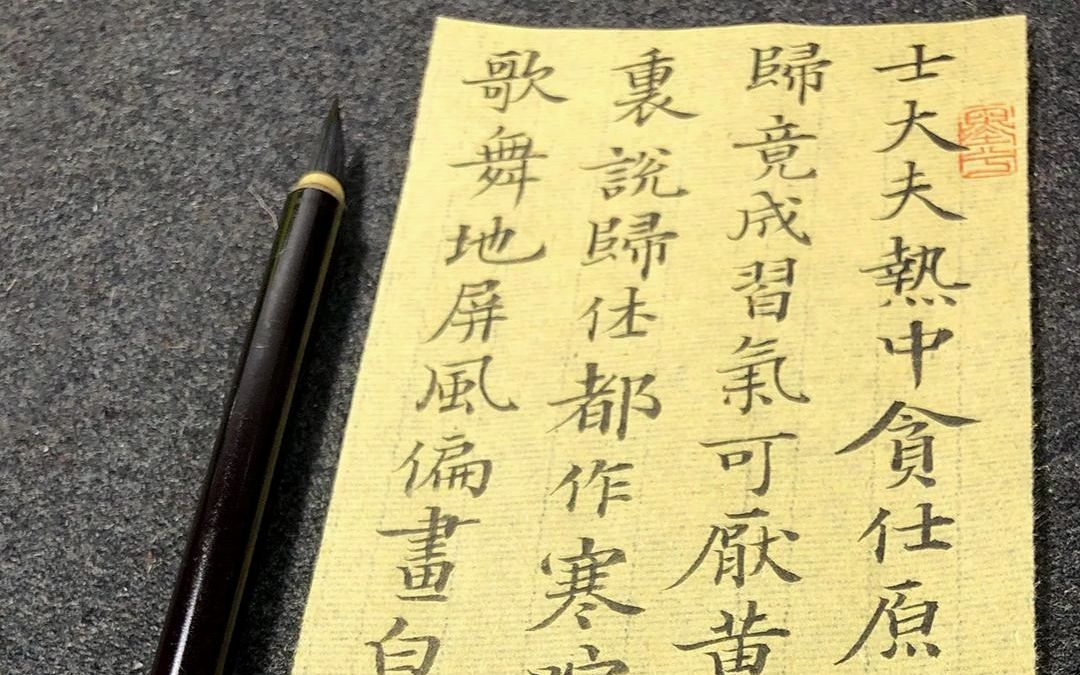 士大夫熱中貪仕原
歸竟成習氣可厭黄
裏說歸休都作寒
歌舞地屏風偏畫白